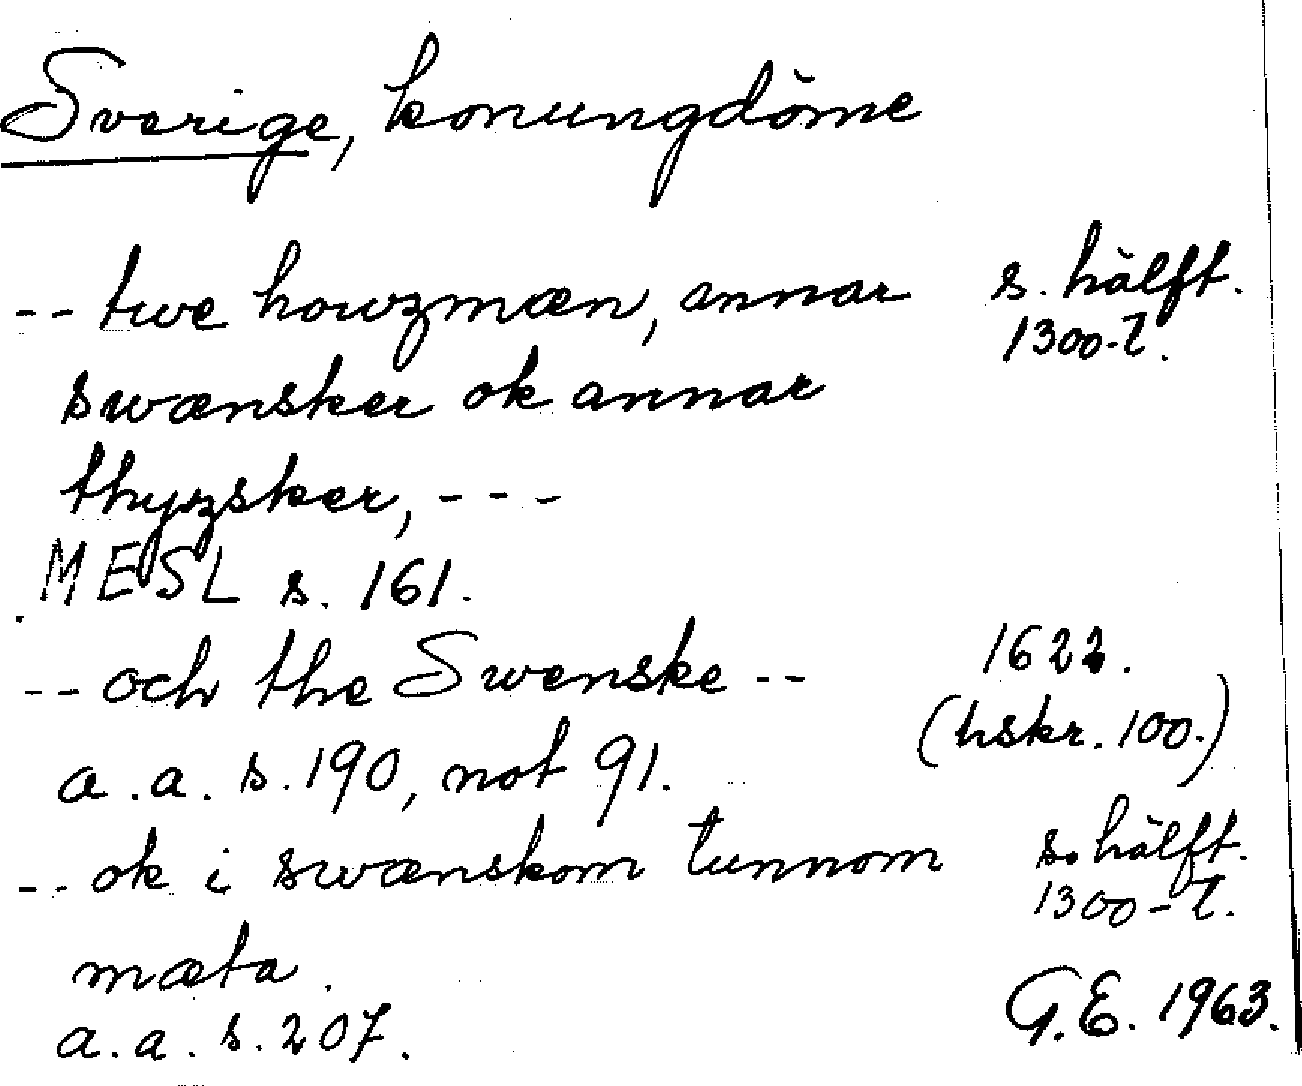 Sverige, konungdöme
-- twe howzmæn, annar s. hälft.
1300-t.
swænsker ok annar
thyzsker, ---
MESL s. 161.
-- och the Swenske -- 1622.
(hskr. 100.)
a.a. s. 190, not 91.
-- ok i swænskom tunnom s. hälft.
1300-t.
mæta.
a.a. s. 207.
G.E. 1963.